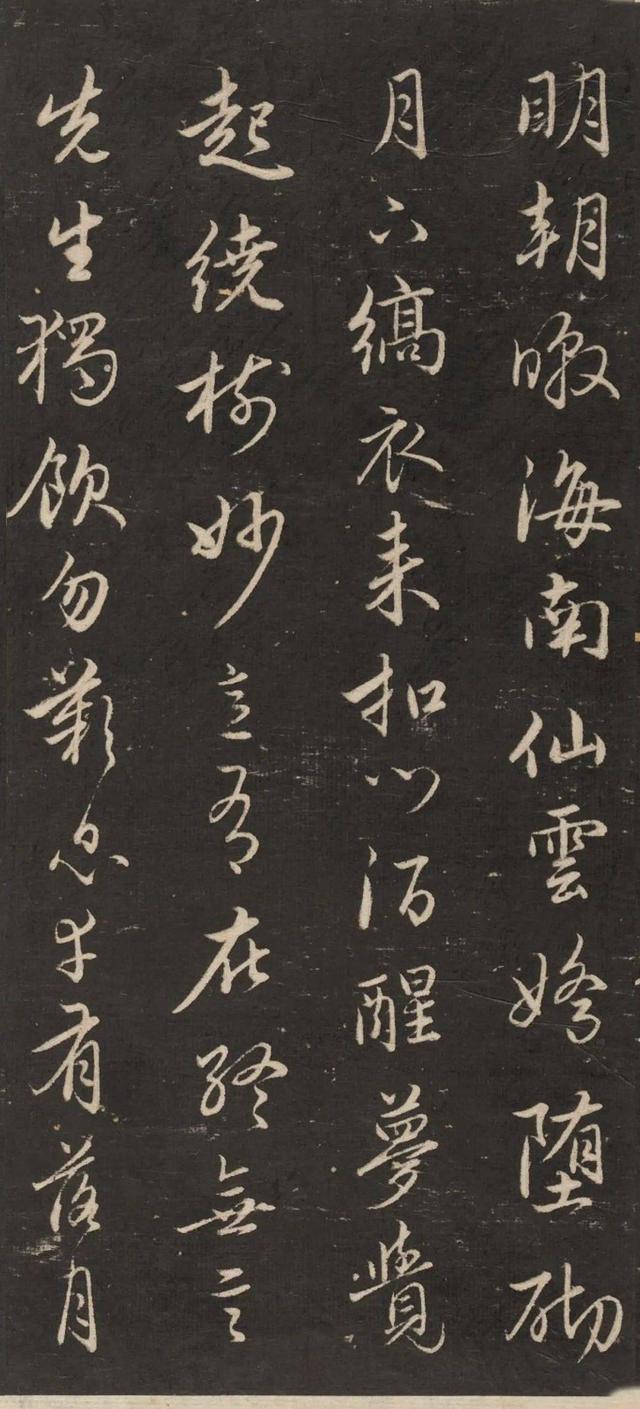 明朝暾海南仙雲嬌堕砌
月下縞衣来扣門酒醒夢覺
起繞樹妙意有在終無言
先生獨飲勿歎息幸有落月